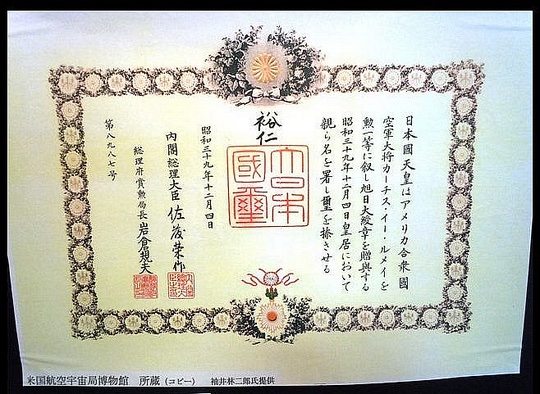 日本國天皇はアメリカ合衆國
空軍大将カーチス・イー・ルメイを
勲一等に叙し旭日大綬章を贈與する
昭和三十九年十二月四日皇居において
親ら名を署し璽を捺させる
裕仁
大日本
國璽
昭和三十九年十二月四日
内閣総理大臣 佐藤榮作
総理府賞勲局長 岩倉規夫
第八九八七号
米国航空宇宙局博物館 所蔵(コピー) 袖井林二郎氏提供